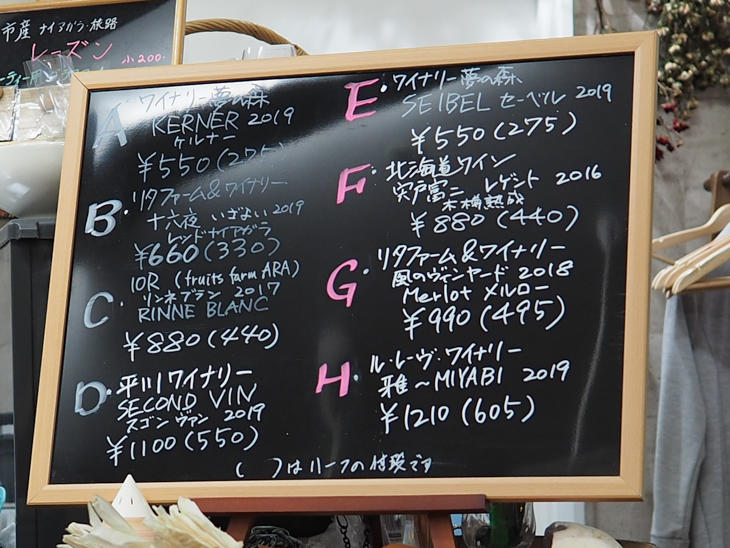 市産 ナイアガラ・旅路
レーズン
小200-
A. ワイナリー夢の森
KERNER 2019
ケルナー
¥550(275)
B. リタファーム&ワイナリー
十六夜 いざよい 2019
レッドナイアガラ
¥660(330)
C. 10R (fruits farm ARA)
リンネブラン 2017
RINNE BLANC
¥880(440)
D. 平川ワイナリー
SECOND VIN
スゴン ヴァン 2019
¥1100(550)
E. ワイナリー夢の森
SEIBEL セーベル 2019
¥550(275)
F. 北海道ワイン
宍戸富二 レゲント 2016
木樽熟成
¥880(440)
G. リタファーム&ワイナリー
風のヴィンヤード 2018
Merlot メルロー
¥990(495)
H. ル・レーヴ・ワイナリー
雅〜MIYABI 2019
¥1210(605)
( )はハーフの値段です